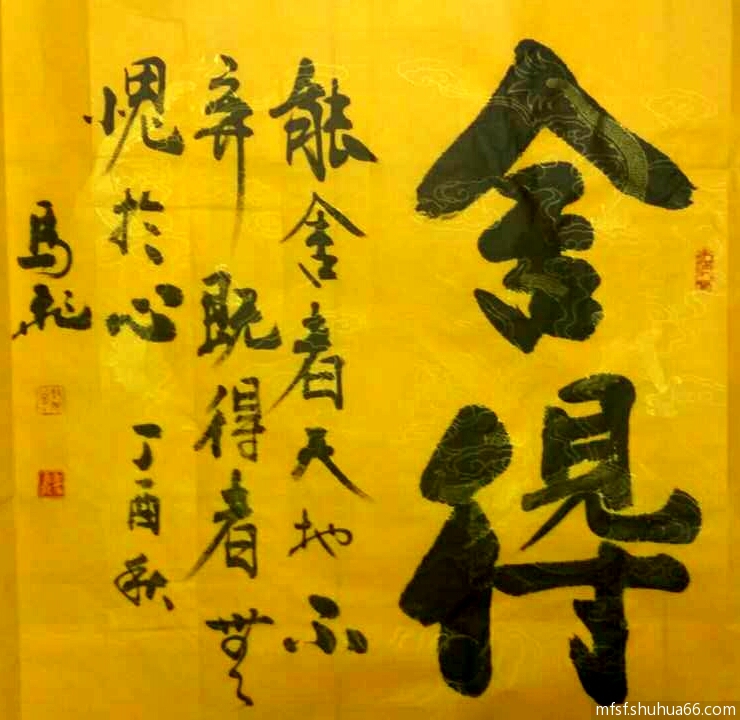 舍得
能舍者天地不
弃既得者無
愧於心 丁酉秋
馬
mfsf.shuhua66.com